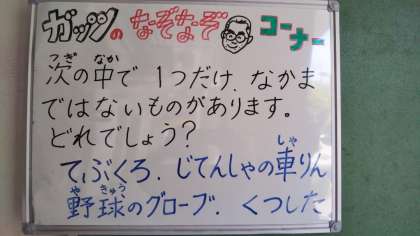 ガッツの なぞなぞ コーナー
次の中で 1つだけ、なかま
ではないものがあります。
どれでしょう?
てぶくろ、じてんしゃの車りん
野球のグローブ、くつした